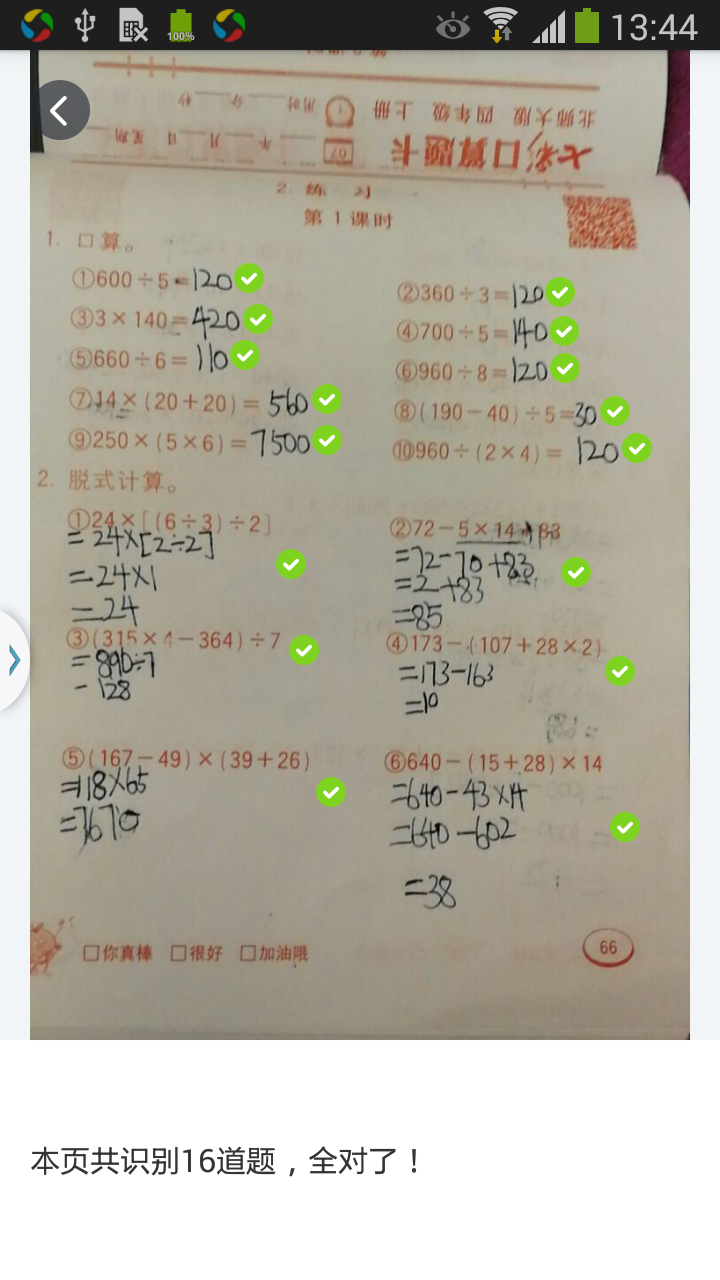 100%
13:44
北师大版 四年级 上册 用时 分 秒
七彩口算题卡 07 年 月 日 星期
2. 练 习 一
第1课时
1. 口算。
①600÷5=120
②360÷3=120
③3×140=420
④700÷5=140
⑤660÷6=110
⑥960÷8=120
⑦14×(20+20)=560
⑧(190-40)÷5=30
⑨250×(5×6)=7500
⑩960÷(2×4)=120
2. 脱式计算。
①24×[(6÷3)÷2]
=24×[2÷2]
=24×1
=24
②72-5×14+83
=72-70+83
=2+83
=85
③(315×4-364)÷7
=896÷7
=128
④173-(107+28×2)
=173-163
=10
⑤(167-49)×(39+26)
=118×65
=7670
⑥640-(15+28)×14
=640-43×14
=640-602
=38
□你真棒 □很好 □加油哦
66
本页共识别16道题，全对了！